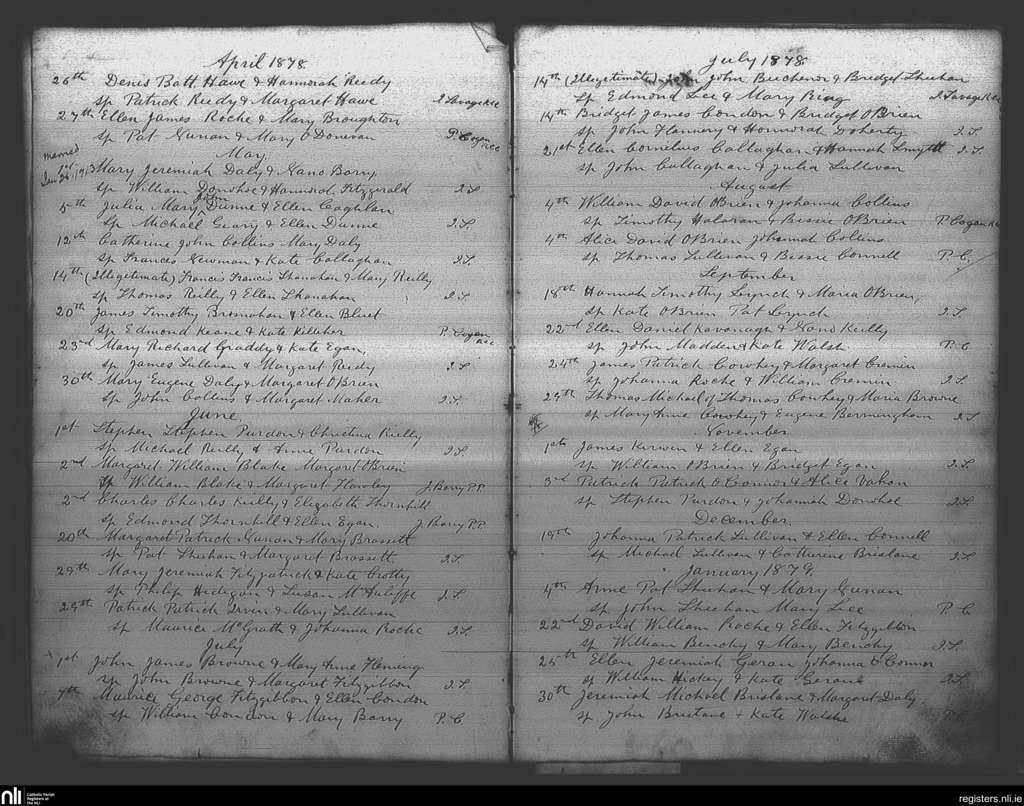 April 1878
26th Denis Batt Hawe & Hannorah Reedy
sp Patrick Reedy & Margaret Hawe
27th Ellen James Roche & Mary Broughton
sp Pat Gunan & Mary O Donovan P. Cogan
May
married
3 Mary Jeremiah Daly & Nano Barry
sp William Donohoe & Hannorah Fitzgerald J.S.
5th Julia Mary John Dunne & Ellen Caghlan
sp Michael Geary & Ellen Dunne J.S.
12th Catherine John Collins Mary Daly
sp Frances Newman & Kate Callaghan J.S.
14th (Illegetimate) Francis Francis Shanahan & Mary Reilly
sp Thomas Reilly & Ellen Shanahan J.S.
20th James Timothy Bresnahan & Ellen
sp Edmond Keane & Kate Kelleher P. Cogan
23rd Mary Richard Graddy & Kate Egan,
sp James Sullivan & Margaret Reidy J.S.
30th Mary Eugene Daly & Margaret OBrien
sp John Collins & Margaret Maher J.S.
June
1st Stephen Stephen Purdon & Christina Reilly
sp Michael Reilly & Anne Purdon J.S.
2nd Margaret William Blake Margart OBrien
sp William Blake & Margaret Howley J. Barry P.P.
2nd Charles Charles Reilly & Elizabeth Thornhill
sp Edmond Thornhill & Ellen Egan. J Barry P.P.
20th Margaret Patrick Gunan & Mary Brassett
sp Pat Sheehan & Margaret Brassett J.S.
29th Mary Jeremiah Fitzpatrick & Kate Crotty
sp Philip Hedigan & Susan McAuliffe J.S.
29th Patrick Patrick Irvin & Mary Sullivan
sp Maurice McGrath & Johanna Roche J.S.
July
1st John James Browne & Mary Anne Fleming
sp John Browne & Margaret Fitzgibbon J.S.
7th Maurice George Fitzgibbon & Ellen Condon
sp William Condon & Mary Barry P. C
July 1878
14th (Illegetimate) John John Buckener & Bridget Sheehan
Sp Edmond Lee & Mary Ring J Savage
14th Bridget James Condon & Bridget OBrien
sp John Flannery & Honnorah Doherty J.S.
21st Ellen Cornelius Callaghan & Hannah Smyth J.S
sp John Callaghan & Julia Sullivan
August
4th William David OBrien & Johanna Collins
sp Timothy Halaran & Bessie OBrien P. Cogan
4th Alice David OBrien Johannah Collins
sp Thomas Sullivan & Bessie Connell P. C.
September
18th Hannah Timothy Lynch & Maria OBrien,
sp Kate OBrien Pat Lynch J.S.
22nd Ellen Daniel Kavanagh & Nano Reilly
sp John Madden & Kate Walsh P. C
24th James Patrick Cowhey & Margaret Cremin
sp Johanna Roche & William Cremin J.S.
29th Thomas Michael of Thomas Cowhey & Maria Browne
sp Mary Anne Cowhey & Eugene Bermingham J.S
November
1st James Kerwen & Ellen Egan
sp William OBrien & Bridget Egan J.S.
3rd Patrick Patrick O Connor & Alice Vahan
sp Stephen Purdon & Johannah Donohoe J.S.
December
19th Johanna Patrick Sullivan & Ellen Connell
sp Michael Sullivan & Catherine Brislane J.S
January 1879.
4th Anne Pat Sheehan & Mary Gunan
sp John Sheehan Mary Lee P. C
22nd David William Roche & Ellen Fitzgibbon
sp William Benchy & Mary Benchy J.S.
25th Ellen Jeremiah Geran Johanna O Connor
sp William Hickey & Kate Gerane J.S
30th Jeremiah Michael Brislane & Margaret Daly
sp John Brislane + Kate Walshe
nli Catholic Parish Registers at the NLI
registers.nli.ie